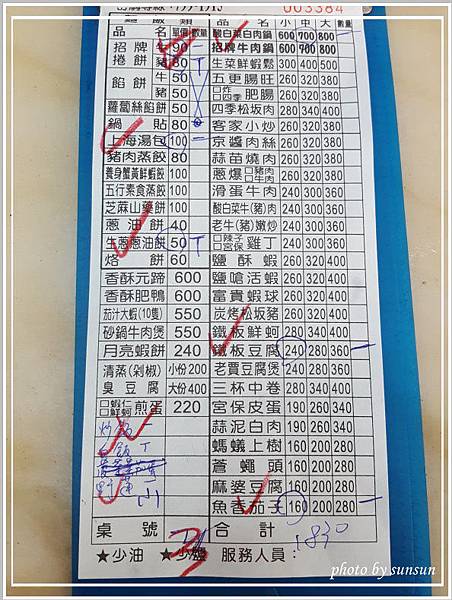 003384
麵飯類 單價 數量 品名 小 中 大 數量
品名 酸白菜白肉鍋 600 700 800
招牌捲餅 牛 90 一 招牌牛肉鍋 600 700 800
豬 80 T 生菜鮮蝦鬆 300 400 500
餡餅 牛 50 五更腸旺 260 320 380
豬 50 □炸 □四季 肥腸 260 320 380
蘿蔔絲餡餅 50 四季松坂肉 280 340 400
鍋貼 80 客家小炒 260 320 380
上海湯包 100 一 京醬肉絲 260 320 380
豬肉蒸餃 80 蒜苗燒肉 260 320 380
養身蟹黃鮮蝦餃 100 蔥爆 □豬肉 □牛肉 260 320 380
五行素食蒸餃 100 滑蛋牛肉 240 300 360
芝麻山藥餅 100 酸白菜牛(豬)肉 240 300 360
蔥油餅 40 老牛(豬)嫩炒 240 300 360
生蔥蔥油餅 50 T □辣子 □宮保 雞丁 240 300 360
烙餅 60 鹽酥蝦 260 320 400
香酥元蹄 600 鹽嗆活蝦 260 320 400
香酥肥鴨 600 富貴蝦球 260 320 400
茄汁大蝦(10隻) 550 炭烤松坂豬 260 320 400
砂鍋牛肉煲 550 鐵板鮮蚵 280 340 400
月亮蝦餅 240 鐵板豆腐 240 280 360 一
清蒸(剁椒)臭豆腐 小份 200 老賈豆腐煲 240 280 360
大份 400 三杯中卷 280 340 400
□蝦仁 □鮮蚵 煎蛋 220 宮保皮蛋 190 260 340
蒜泥白肉 190 260 340
螞蟻上樹 160 200 280
蒼蠅頭 160 200 280
麻婆豆腐 160 200 280
魚香茄子 160 200 280 一
白飯 T
野蓮 小
桌號 合計 1830
★少油 ★少鹽 服務人員:
photo by sunsun